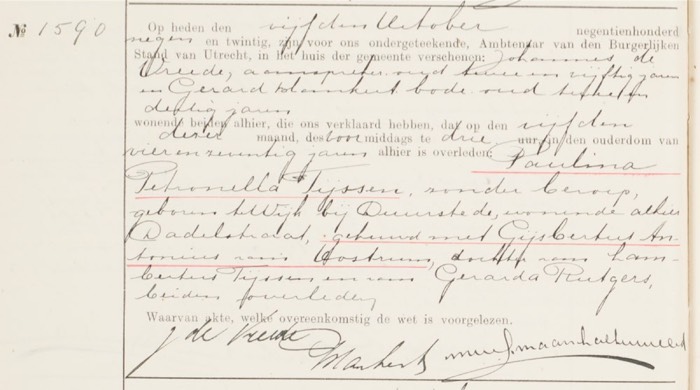 № 1590
Op heden den vijfden October negentienhonderd
negen en twintig, zijn voor ons ondergeteekende, Ambtenaar van den Burgerlijken
Stand van Utrecht, in het huis der gemeente verschenen: Johannes de
Vreede, aanspreker oud twee en vijftig jaren
en Gerard Mankert bode oud
dertig jaren
wonende beiden alhier, die ons verklaard hebben, dat op den vijfden
dezer maand, des voormiddags te drie uur, in den ouderdom van
vier en zeventig jaren alhier is overleden: Paulina
Petronella Tijssen, zonder beroep,
geboren te Wijk bij Duurstede, wonende alhier
Dadelstraat, gehuwd met Gijsbertus An-
tonius van Oostrum, dochter van Lam-
bertus Tijssen en van Gerarda Rutgers,
beiden overleden
Waarvan akte, welke overeenkomstig de wet is voorgelezen.
J de Vreede
Mankert